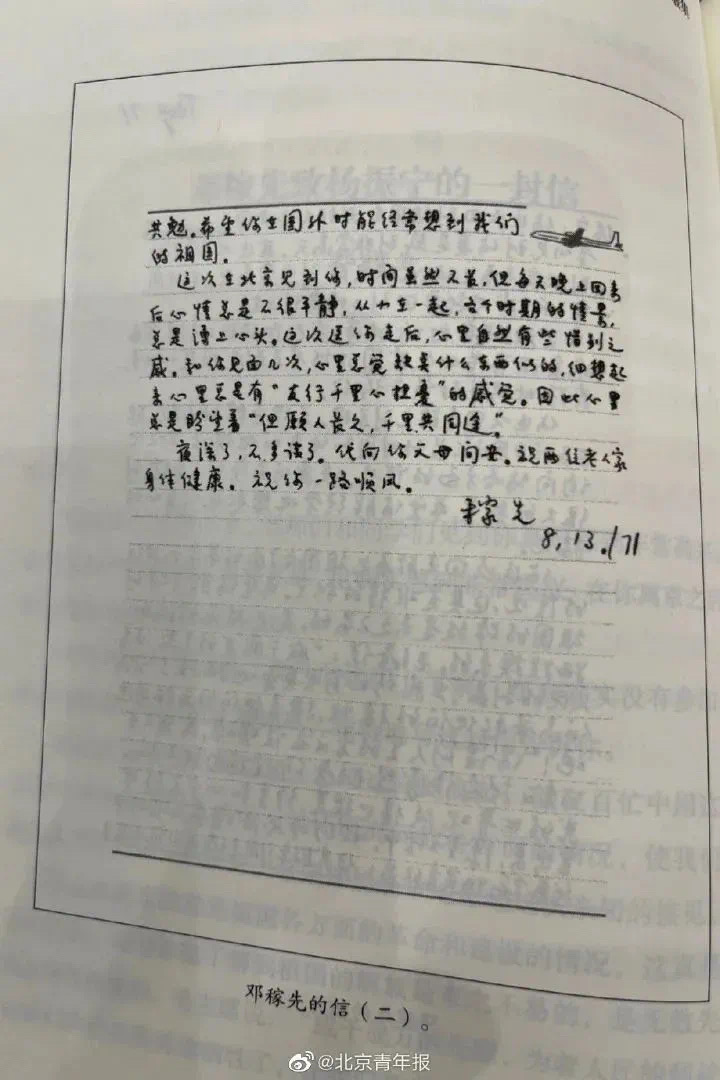 共勉。希望你在国外时能经常想到我们
的祖国。
这次在北京见到你，时间虽然不长，但每天晚上回来
后心情总是不很平静，从小在一起，各个时期的情景，
总是涌上心头。这次送你走后，心里自然有些惜别之
感。和你见面几次，心里总觉缺点什么东西似的，细想起
来心里总是有“友行千里心担忧”的感觉。因此心里
总是盼望着“但愿人长久，千里共同途”。
夜深了，不多谈了。代向你父母问安。祝两位老人家
身体健康。祝你一路顺风。
稼先
8.13./71
邓稼先的信（二）。
@北京青年报